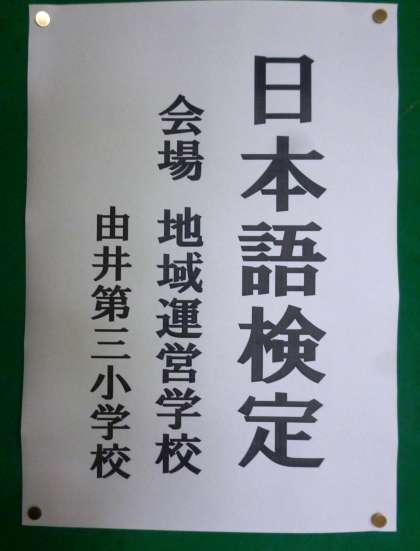 日本語検定
会場 地域運営学校
由井第三小学校